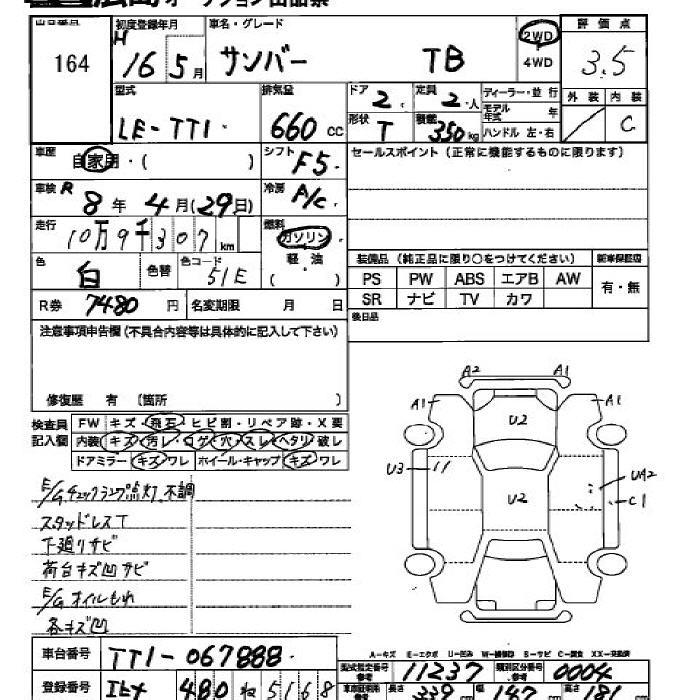 広島オークション出品票
出品番号 初度登録年月 車名・グレード 評価点
164 H 16年5月 サンバー TB 2WD 4WD 3.5
型式 排気量 ドア 2 定員 2人 ディーラー・並行 外装 内装
LE-TT1 660cc 形状 T 積載 350kg モデル年式 年 ハンドル 左・右 C
車歴 自家用・( ) シフト F5 セールスポイント(正常に機能するものに限ります)
車検 R 8年4月(29日) 冷房 A/C
走行 10万9千307km 燃料 ガソリン 軽・油 ( )
色 白 色替 色コード 51E
装備品(純正品に限り○をつけてください) 新車保証書
PS PW ABS エアB AW 有・無
SR ナビ TV カワ
R券 7480円 名変期限 月 日
後日品
注意事項申告欄(不具合内容等は具体的に記入して下さい)
修復歴 有 〔箇所 〕
検査員記入欄 FW キズ・飛石・ヒビ割・リペア跡・X要
内装 キズ・汚レ・コゲ・穴・スレ・ヘタリ・破レ
ドアミラー キズ・ワレ ホイール・キャップ キズ・ワレ
E/Gチェックランプ点灯、不調
スタッドレスT
下廻りサビ
荷台キズ凹サビ
E/Gオイルもれ
各キズ凹
A2 A1
A1 U2 A1
U3 U2 UA2
C1
A-キズ E-エクボ U-凹み W-補修跡 S-サビ C-腐食 XX-交換済
車台番号 TT1-067888
型式指定番号 参考 11237 類別区分番号 参考 0004
登録番号 480 ね 5168
長さ 339cm 幅 147cm 高さ 181cm